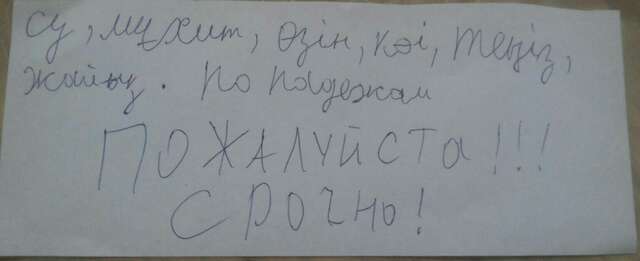 су, мұхит, өзін, көі, теңіз,
жайық. по падежам
ПОЖАЛУЙСТА!!!
СРОЧНО!